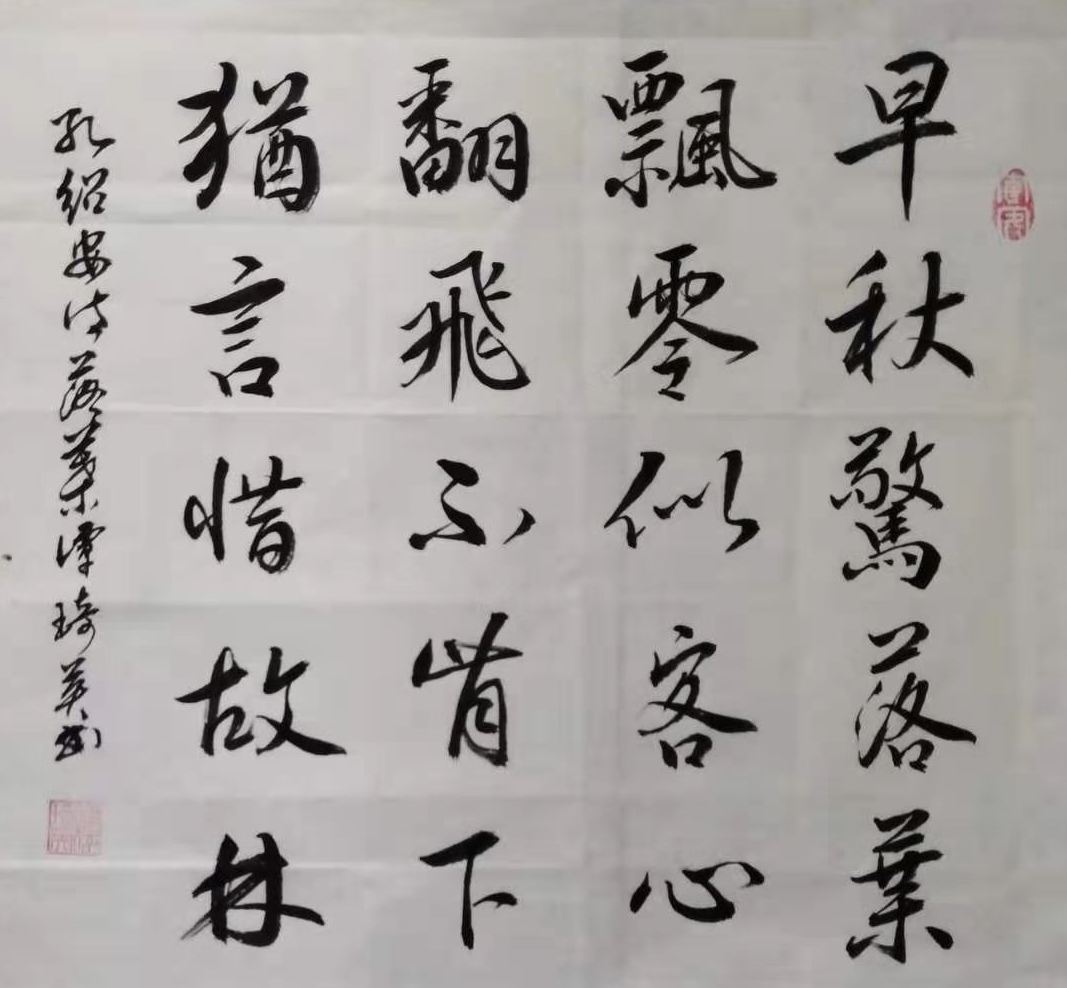 早秋驚落葉
飄零似客心
翻飛不肯下
猶言惜故林
孔紹安詩落葉譚琦英書